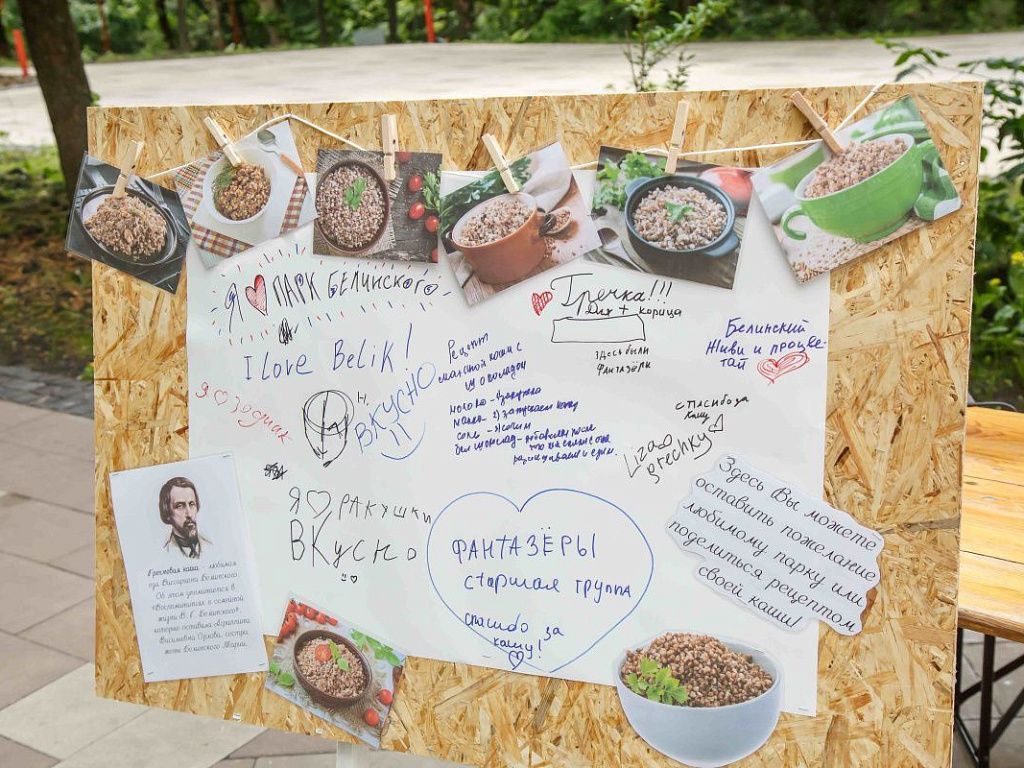 Я ПАРК БЕЛИНСКОГО
I love Belik!
Я Зодиак
Н.
ВКУСНО
Рецепт
манной каши с
шоколадом
молоко -
соль -
Гречка!!!
+ корица
ЗДЕСЬ БЫЛИ
ФАНТАЗЁРЫ
Белинский
Живи и процве-
тай
спасибо за
кашу
Liza
grechky
Я РАКУШКИ
ВКУСНО
ФАНТАЗЁРЫ
старшая группа
спасибо за
кашу!
Здесь Вы можете
оставить пожелание
любимому парку или
поделиться рецептом
своей каши!
Гречневая каша - любимая
еда Виссариона Белинского.
Об этом упоминается в
«Воспоминаниях о семейной
жизни В. Г. Белинского»,
которые оставила Агриппина
Васильевна Орлова, сестра
жены Белинского Марии.